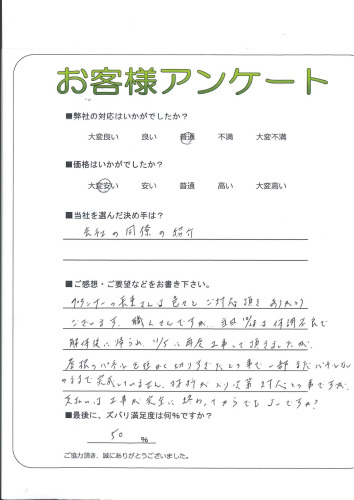 お客様アンケート
■弊社の対応はいかがでしたか？
大変良い 良い 普通 不満 大変不満
■価格はいかがでしたか？
大変安い 安い 普通 高い 大変高い
■当社を選んだ決め手は？
会社の同僚の紹介
■ご感想・ご要望などをお書き下さい。
プランナーの長妻さんは色々とご対応頂きありがとう
ございます。職人さんですが、当初 は体調不良で
解体後に帰られ、 に再度工事して頂きましたが、
屋根のパネルを短かく切りすぎたとの事で一部まだパネルなし
のままで完成していません。材料が入り次第対応との事ですが、
支払いは工事が完全に終わってからでもよいですか？
■最後に、ズバリ満足度は何%ですか？
50 %
ご協力頂き、誠にありがとうございました。